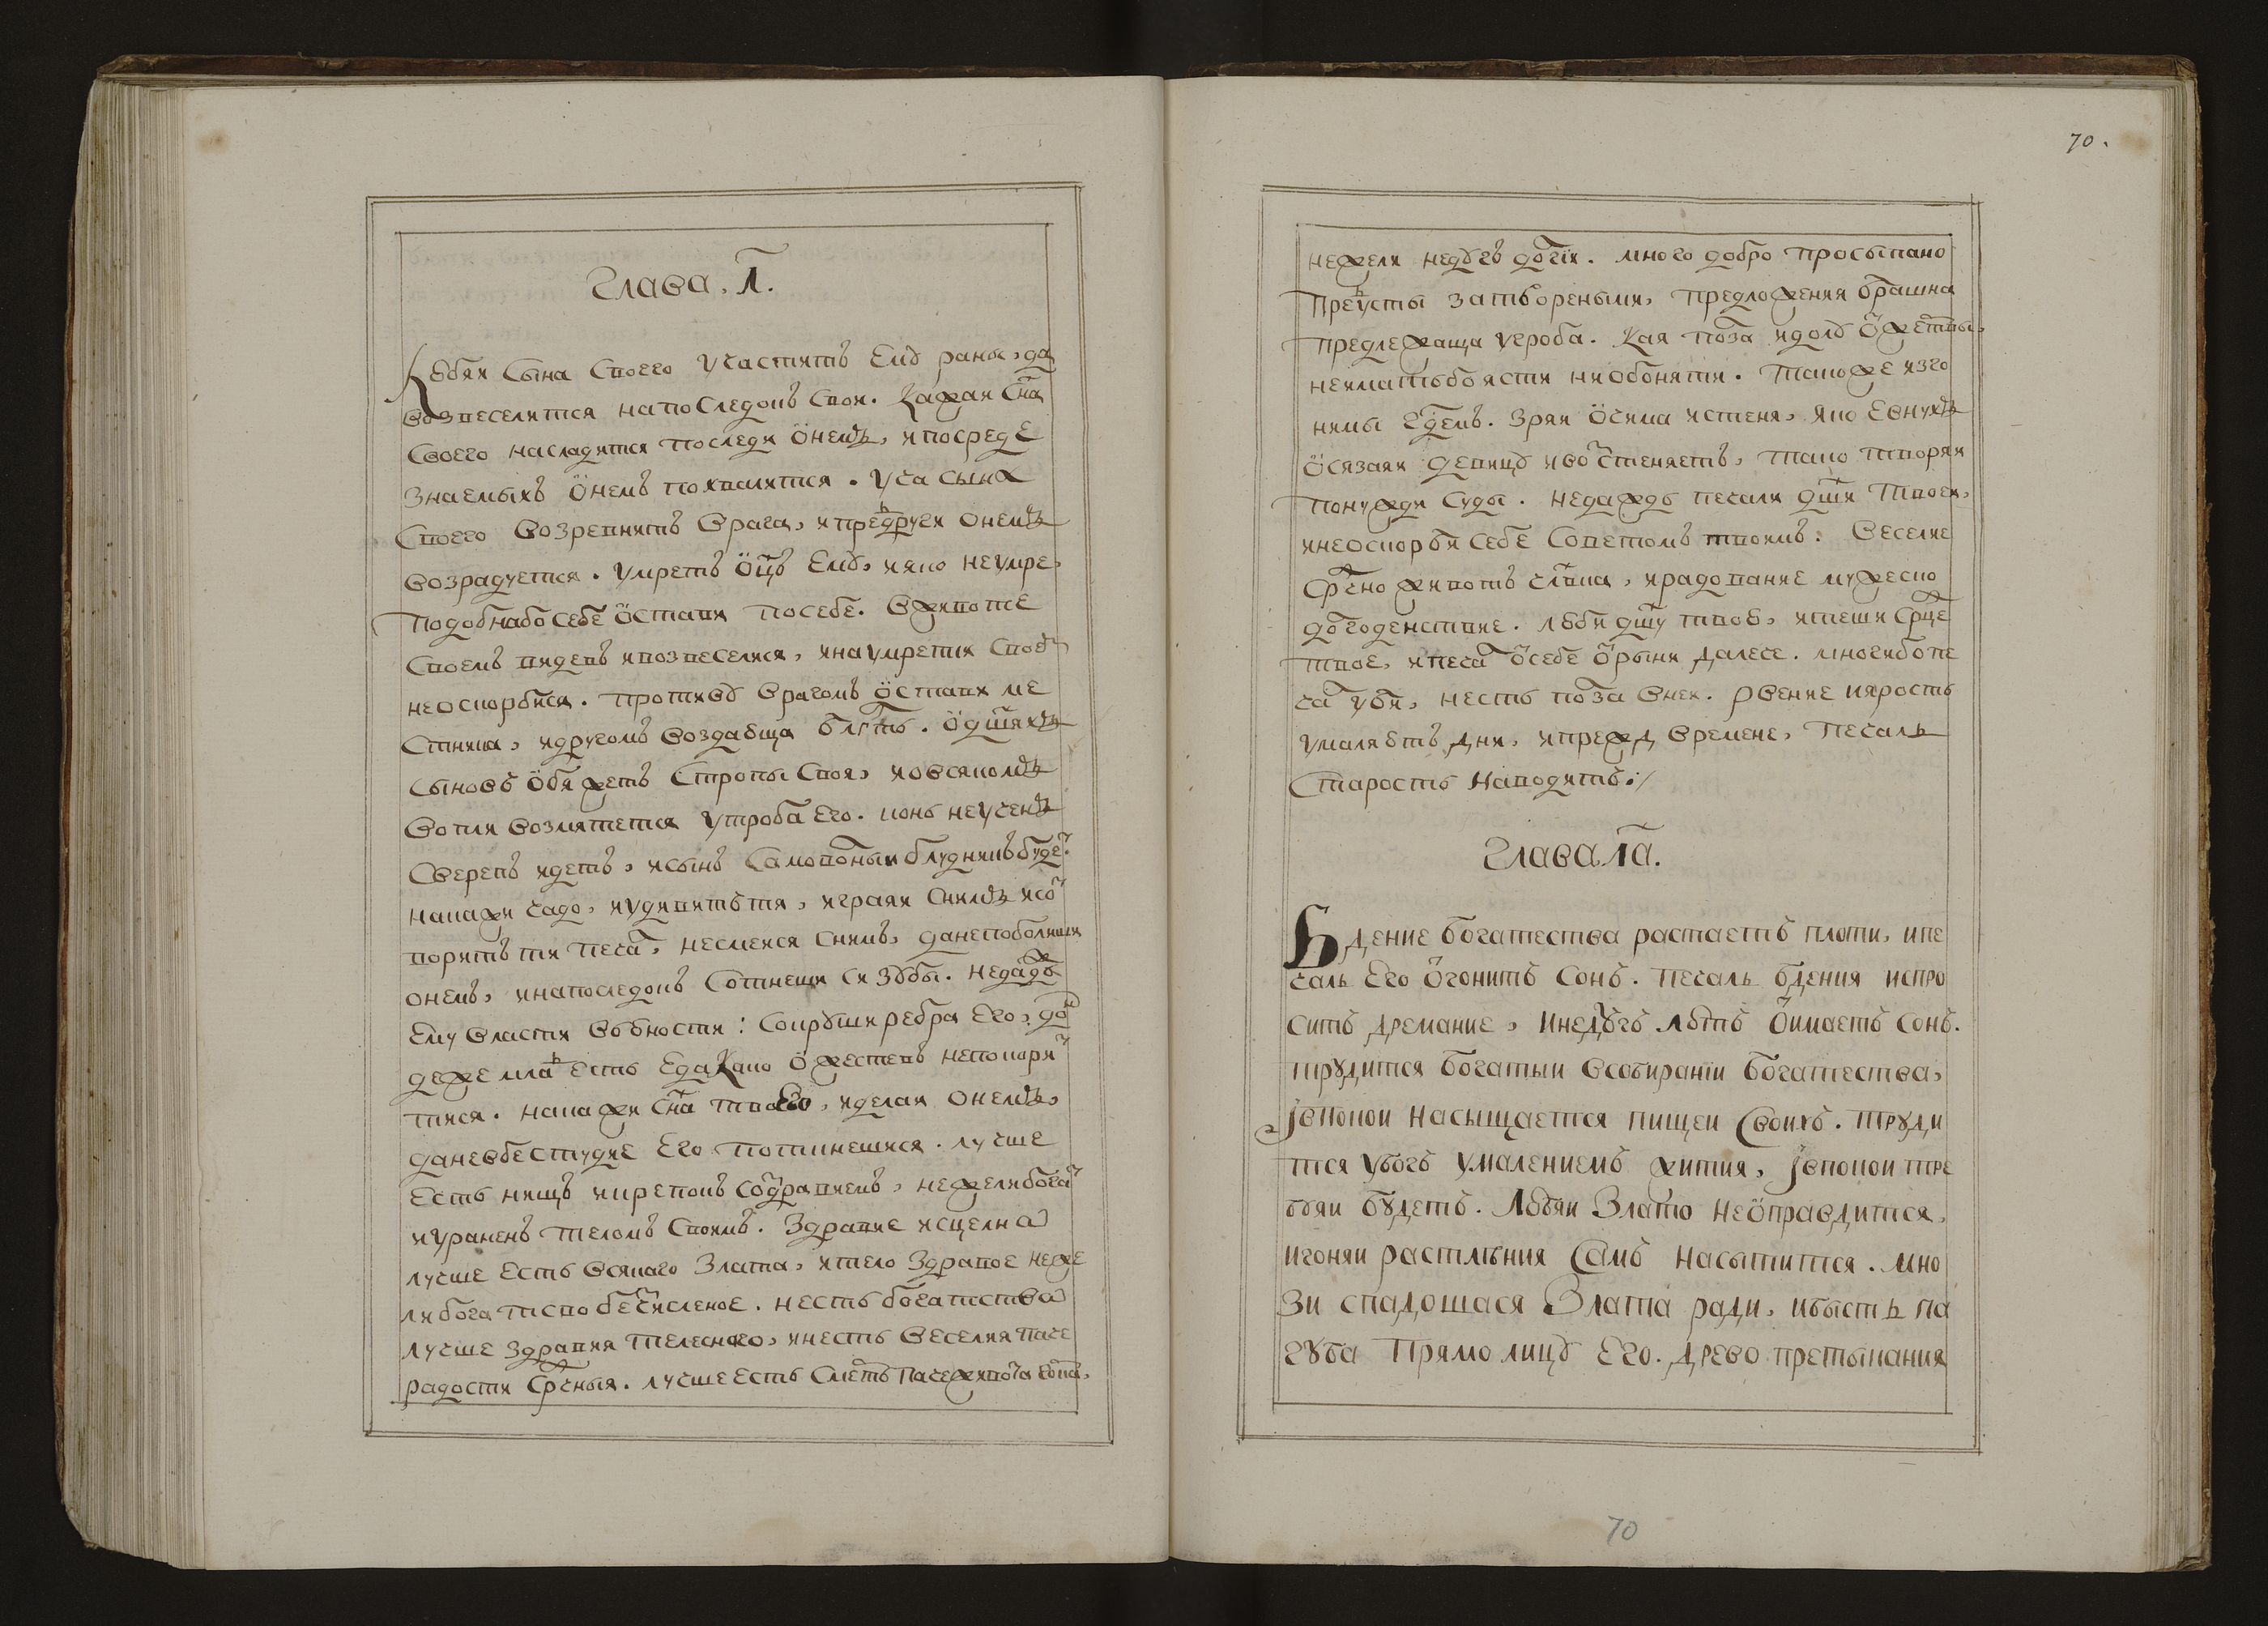 Глава. л҃.
Любяи сына своего участитъ ему раны, да
возвеселится напоследокъ свои. Кажаи сн҃а
своего насладится последи ѻнемъ, ипосреде
знаемыхъ ѻнемъ похвалится. Уча сына
своего возревнитъ врага, ипредъдруги онемъ
возрадуется. Умретъ ѻц҃ъ ему, ияко неумре,
подобнабо себе ѻстави посебе. Вживоте
своемъ видевъ ивозвеселися, инаумретия свое
неоскорбися. противу врагомъ ѻстави ме
стника, идругомъ воздающа блг҃ть. ѻдш҃ахъ
сыновъ ѻбяжетъ струпы своя, иовсякомъ
вопли возмятется утроба его. конь неученъ
сверепъ идетъ, исынъ самоволныи блудникъ буде.
накажи чадо, иудивитътя, играяи снимъ исо
творитъ ти печа, несмеися снимъ, данепоболиши
онемъ, инапоследокъ сотнеши си зубы. недаждь
ему власти въюности: сокруши ребра его, до
деже младъ есть еда како ѻжестевъ непокори
тися. накажи сн҃а твоего, иделаи онемъ,
даневбестудие его поткнешися. лучше
есть нищъ икрепокъ создравиемъ, нежелибога
иураненъ теломъ своимъ. Здравие исцелна
лучше есть всякаго злата, итело здравое неже
ли богатство бесчисленое. несть богатства
лучше здравия телеснаго, инесть веселия паче
радости срд҃чныя. лучше есть сметь паче живота горка,
70.
нежели недугъ долгии. много добро просыпано
предъусты затвореными, предложения брашна
предлежаща угроба. Кая полза идолу ѻжертвы,
неиматьбоясти ниобоняти. такоже изго
нимы едемъ. зряи ѻчима истеня, яко евнухъ
ѻсязаяи девицу ивостеняетъ, тако творяи
понужди суды. недаждь печали дш҃и твоеи,
инеоскорби себе советомъ твоимъ. веселие
срд҃чно животъ чл҃вка, ирадование мужеско
долгоденствие. люби дш҃у твою, иутеши срд҃це
твое, ипечаль ѿсебе ѿрыни далече. многибопе
чаль уби, несть полза внеи. рвение иярость
умаляютъ дни, ипрежд времене, печаль
старость наводитъ:/
Глава ла҃.
Бдение богатества растаетъ плоти, ипе
чаль его ѿгонитъ сонъ. печаль бдения испро
ситъ дремание, инедугъ лютъ ѿимаетъ сонъ.
трудится богатыи всобирании богатества,
јвпокои насыщается пищеи своихъ. труди
тся убогъ умалениемъ жития, јвпокои тре
буяи будетъ. любяи злато неѻправдится,
игоняи растлѣния самъ насытится. мно
зи спадошася злата ради, ибысть па
губа прямо лицу его. древо претыкания
70